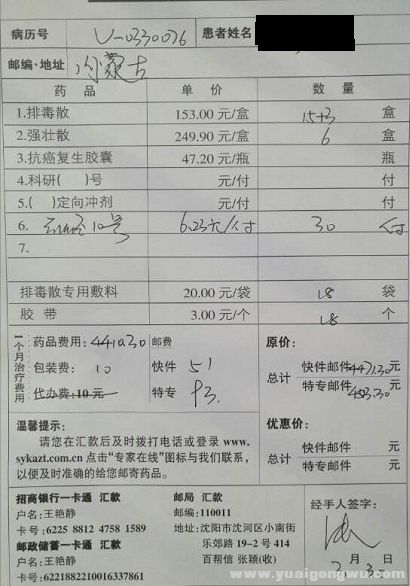 病历号 V-0330076 患者姓名
邮编·地址 内蒙古
药 品 单 价 数 量
1.排毒散 153.00 元/盒 15+3 盒
2.强壮散 249.90 元/盒 6 盒
3.抗癌复生胶囊 47.20 元/瓶 瓶
4.科研( )号 元/付 付
5.( )定向冲剂 元/付 付
6. 10号 6.23元/付 30 付
7.
排毒散专用敷料 20.00 元/袋 18 袋
胶 带 3.00 元/个 18 个
1个月治疗费用
药品费用: 4410.30 邮费
包装费: 10 快件 51
代办费:10元 特专 93
原价:
总计 快件邮件 4471.30元
特专邮件 4513.30
温馨提示:
请您在汇款后及时拨打电话或登录 www.
sykazt.com.cn 点击“专家在线”图标与我们联系,
以便及时准确的给您邮寄药品。
优惠价:
总计 快件邮件 元
特专邮件 元
招商银行一卡通 汇款
户名:王艳静
卡号:6225 8812 4758 1589
邮政储蓄一卡通 汇款
户名:王艳静
卡号:6221882210016337861
邮局 汇款
邮编:110011
地址:沈阳市沈河区小南街
乐郊路 19-2 号 414
百帮信 张颖(收)
经手人签字:
3 月 3 日
www.yuaigongwu.com